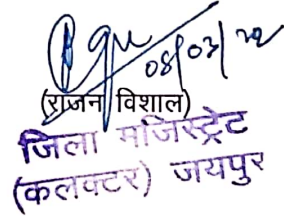 08/03/22
(राजन विशाल)
जिला मजिस्ट्रेट
(कलक्टर) जयपुर